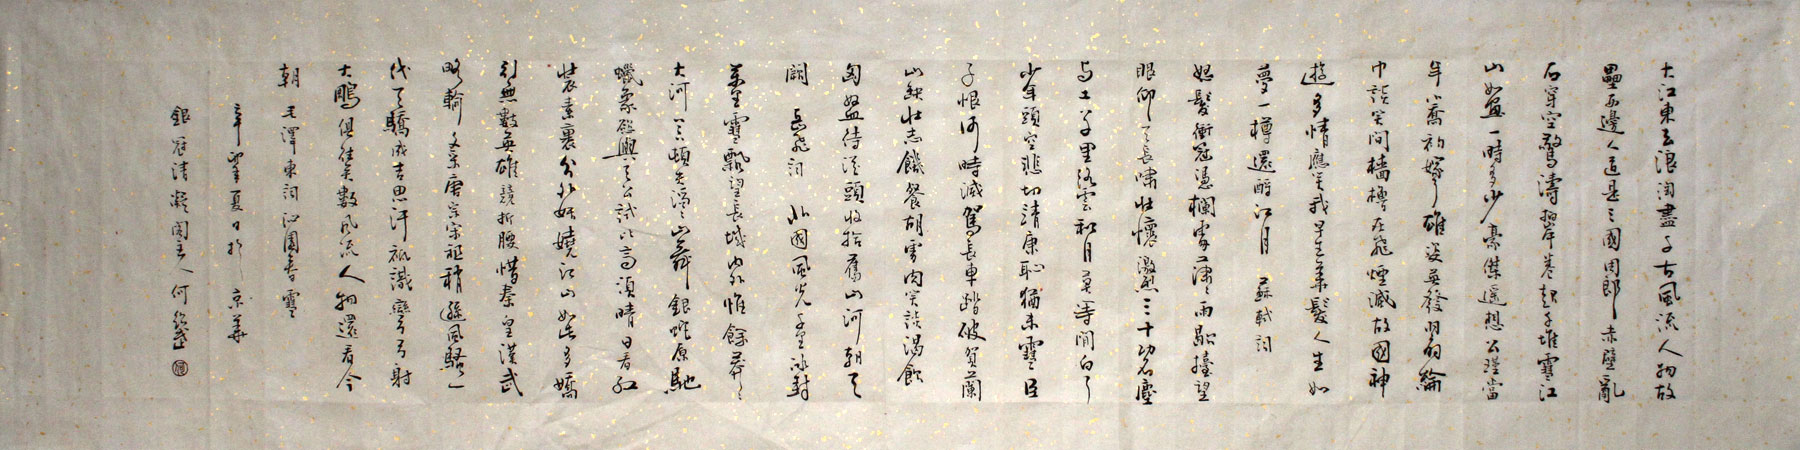 大江東去浪淘盡千古風流人物故
壘西邊人道是三國周郎赤壁亂
石穿空驚濤拍岸卷起千堆雪江
山如畫一時多少豪傑遥想公瑾當
年小喬初嫁了雄姿英發羽扇綸
巾談笑間檣櫓灰飛煙滅故國神
遊多情應笑我早生華髮人生如
夢一樽還酹江月 蘇軾詞
怒髮衝冠憑欄處瀟瀟雨歇擡望
眼仰天長嘯壯懷激烈三十功名塵
與土八千里路雲和月莫等閒白了
少年頭空悲切靖康恥猶未雪臣
子恨何時滅駕長車踏破賀蘭
山缺壯志饑餐胡虜肉笑談渴飲
匈奴血待從頭收拾舊山河朝天
闕 岳飛詞 北國風光千里冰封
萬里雪飄望長城內外惟餘莽莽
大河上下頓失滔滔山舞銀蛇原馳
蠟象欲與天公試比高須晴日看紅
裝素裹分外妖嬈江山如此多嬌
引無數英雄競折腰惜秦皇漢武
略輸文采唐宗宋祖稍遜風騷一
代天驕成吉思汗祇識彎弓射
大鵰俱往矣數風流人物還看今
朝 毛澤東詞沁園春雪
辛卯夏日於京華
銀冠清凝閣主人何